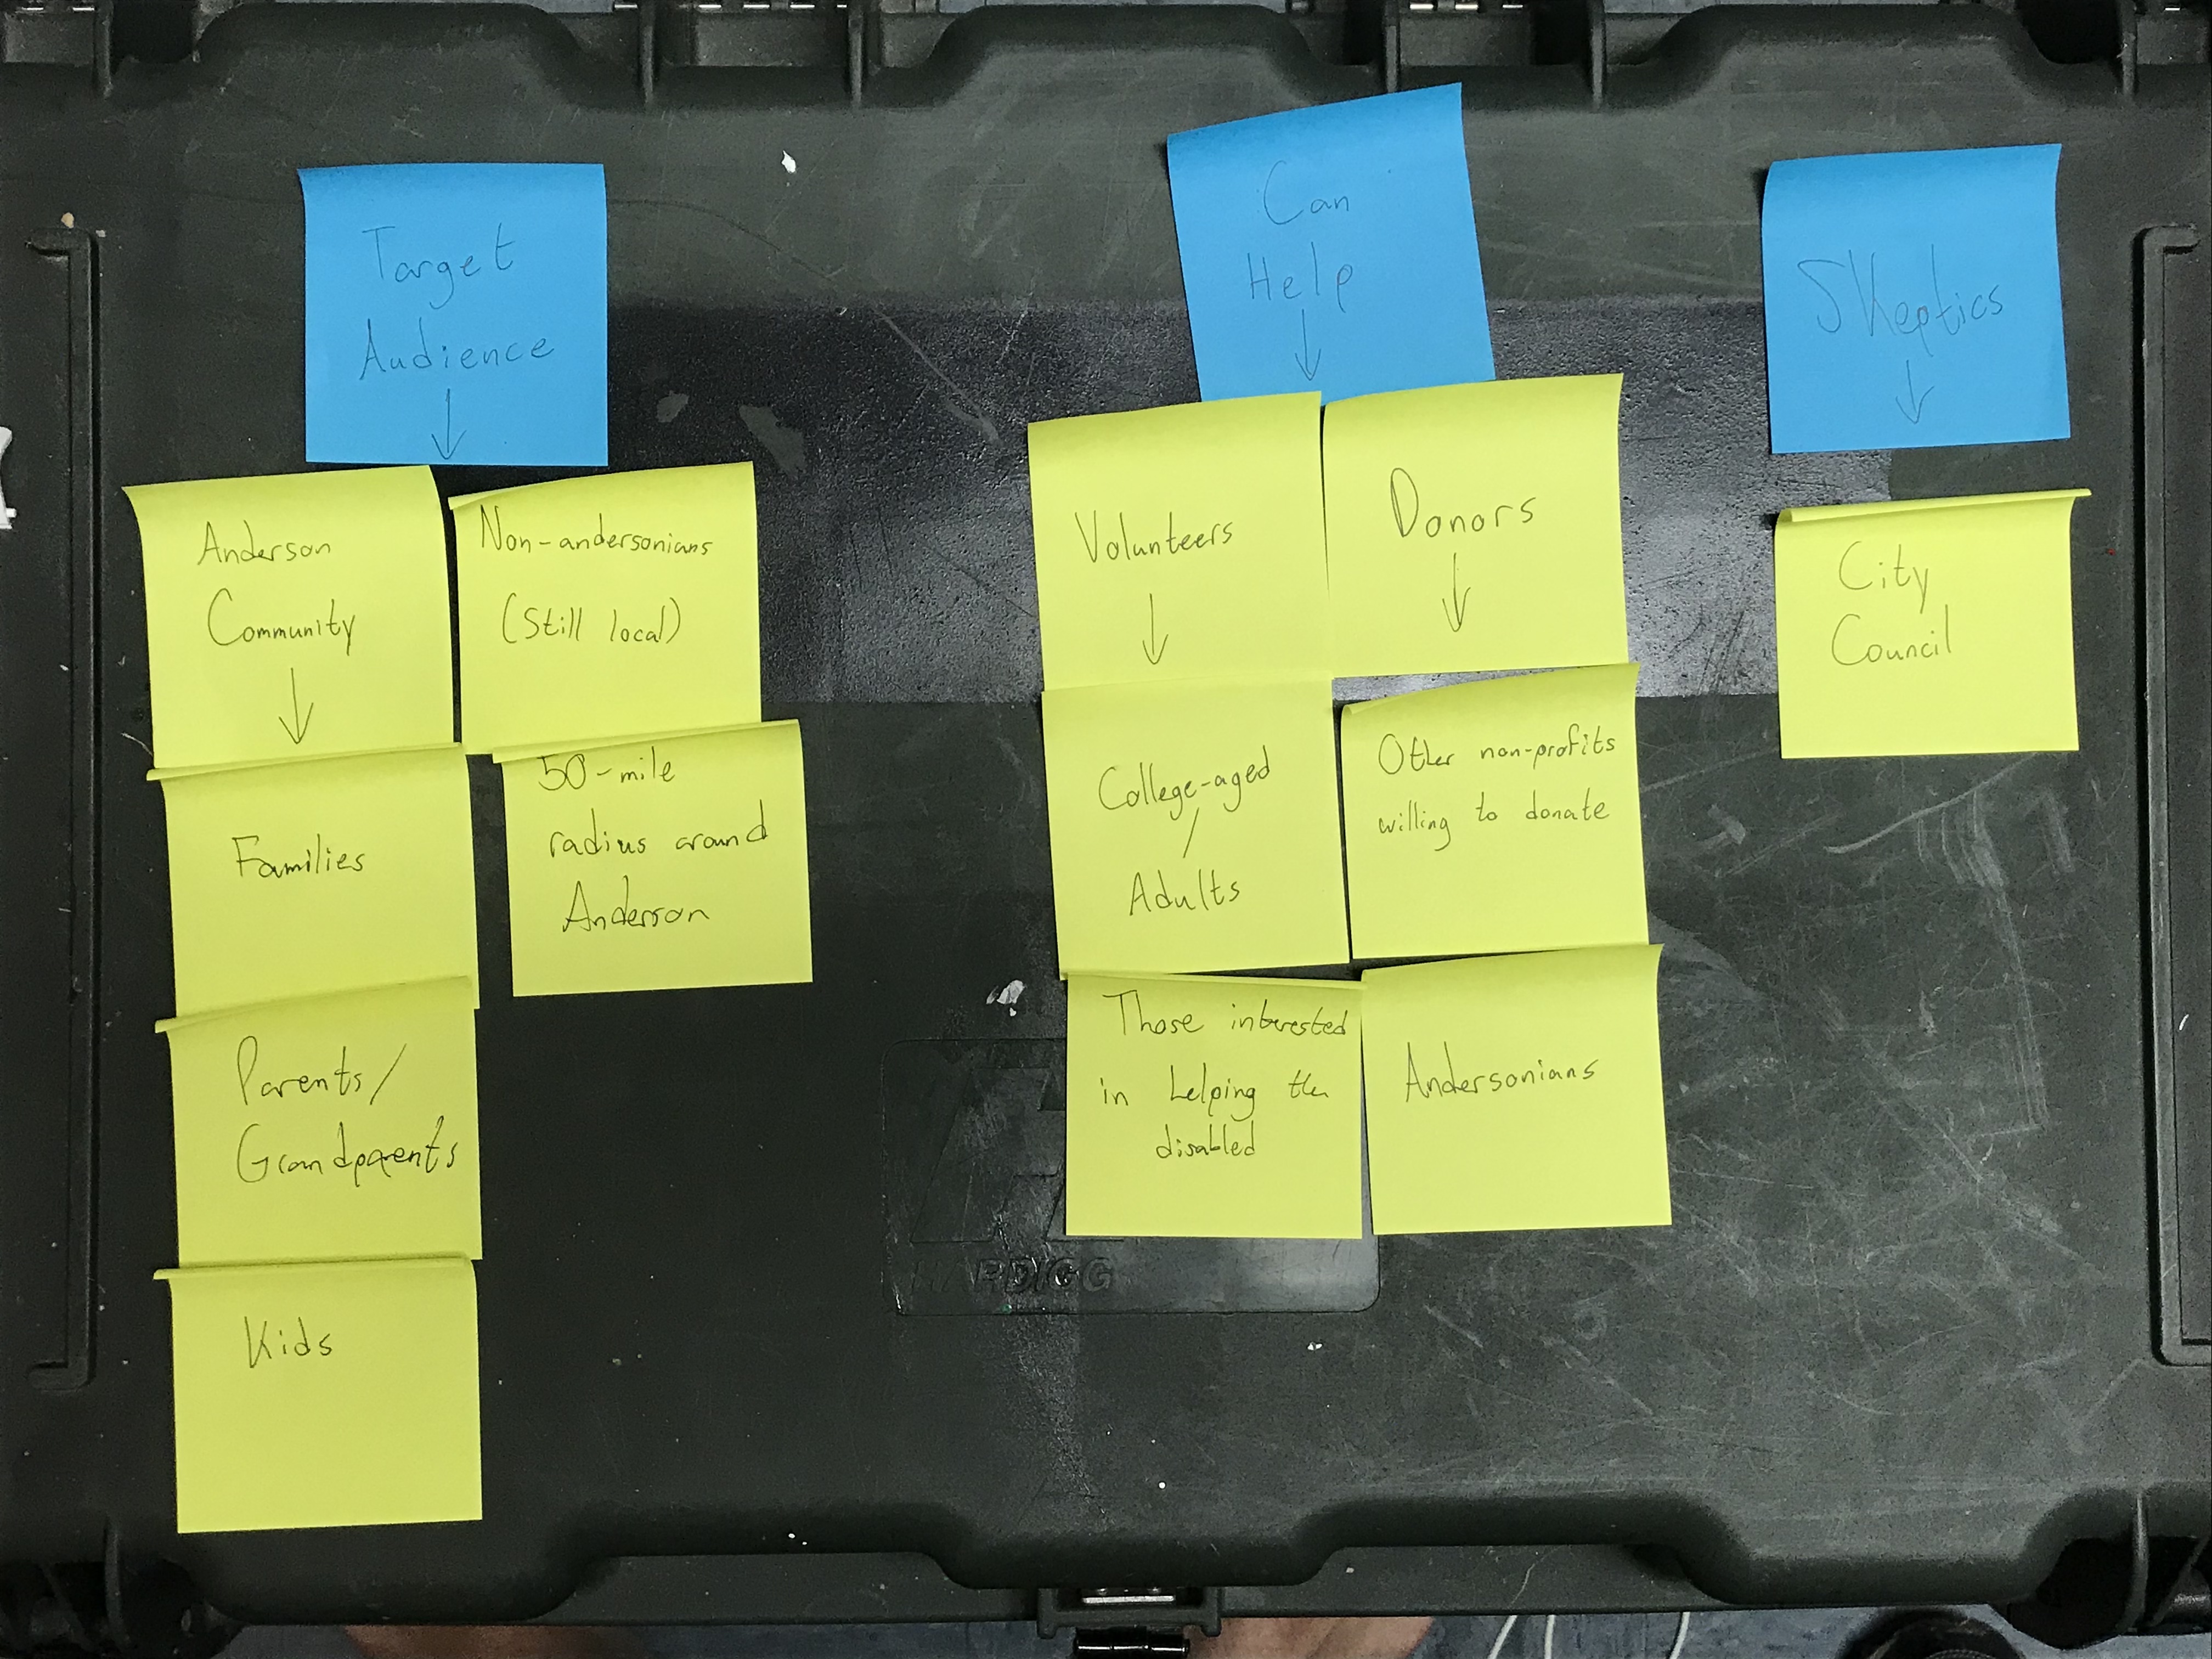 Target
Audience
Anderson
Community
Families
Parents/
Grandparents
Kids
Non-andersonians
(Still local)
50-mile
radius around
Anderson
Can
Help
Volunteers
College-aged
/
Adults
Those interested
in helping the
disabled
Donors
Other non-profits
willing to donate
Andersonians
Skeptics
City
Council
HARDIGG